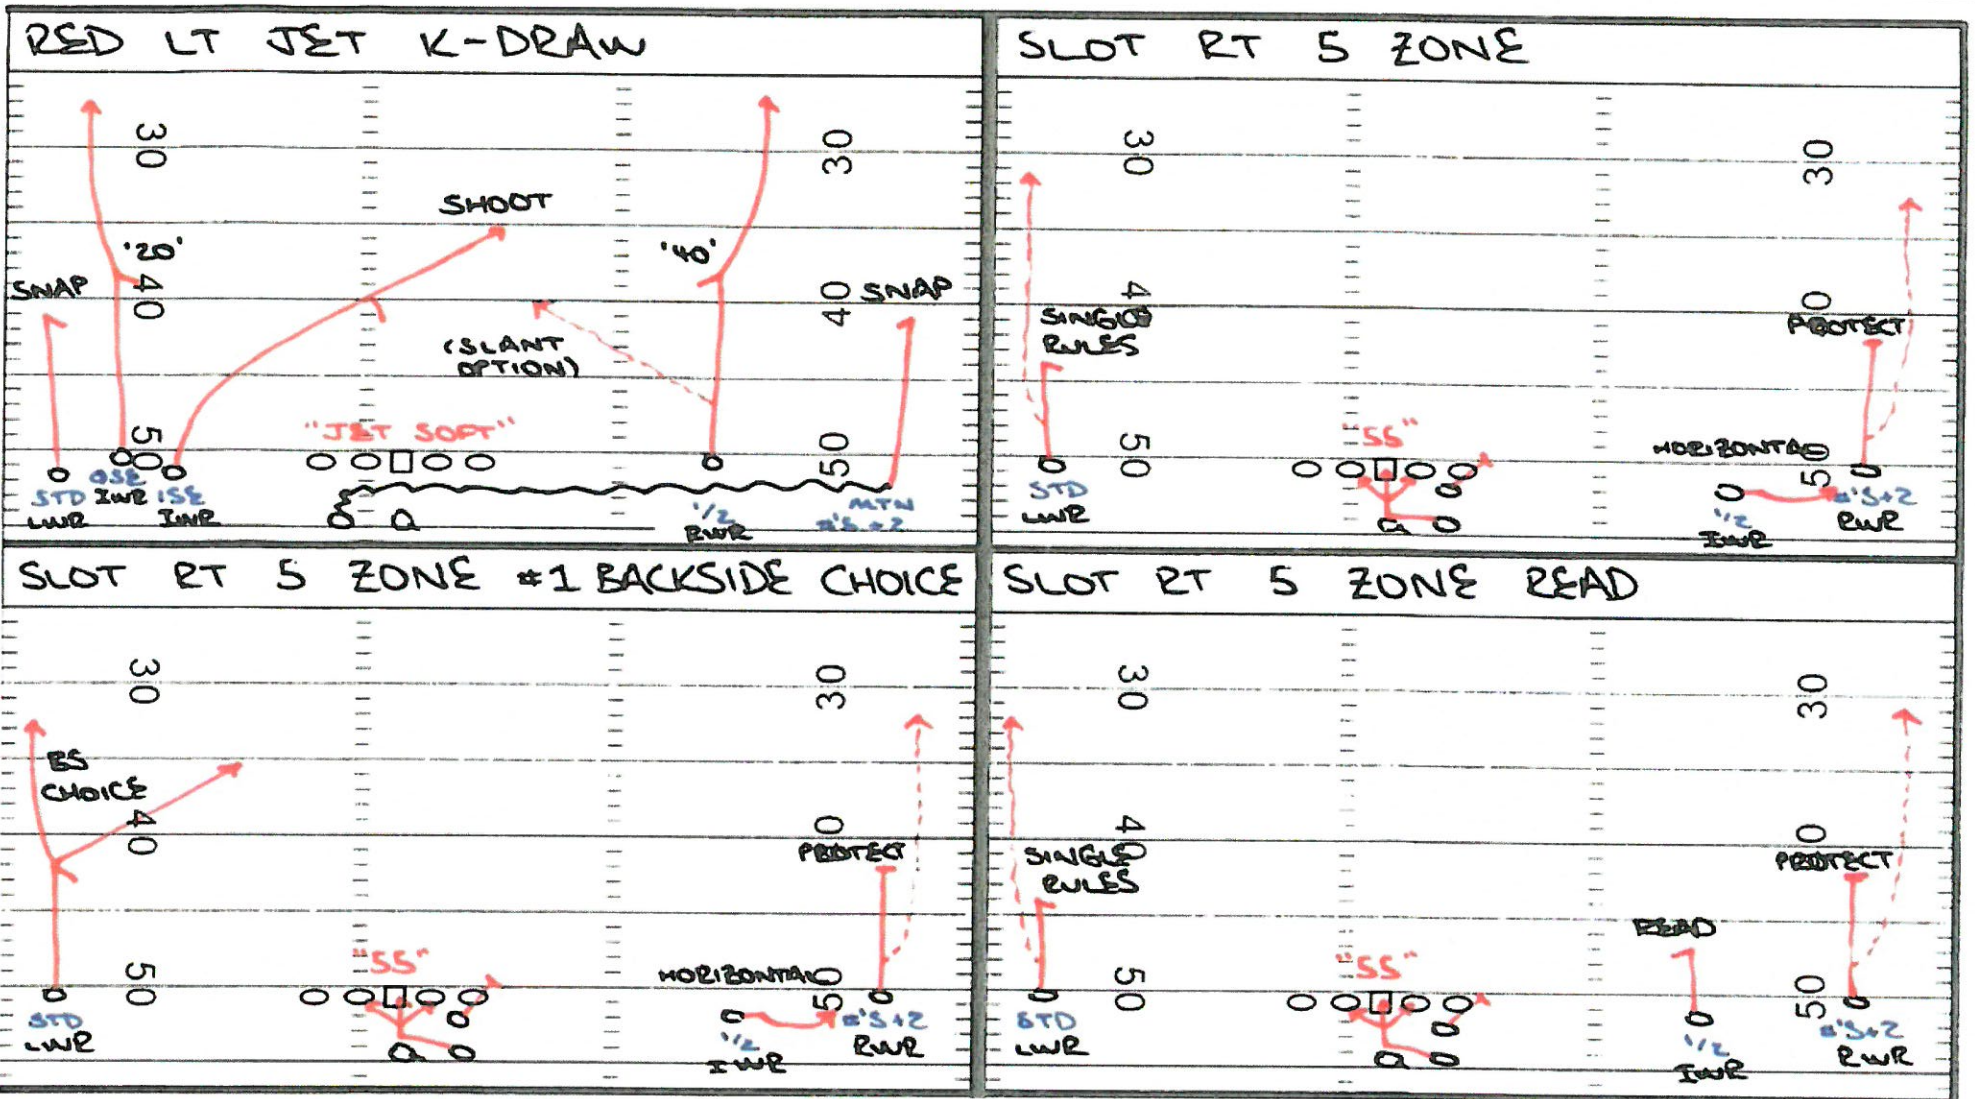 RED LT JET K-DRAW
30
30
SHOOT
'20'
'40'
SNAP
40
40
SNAP
(SLANT
OPTION)
"JET SOFT"
50
50
STD
LWR
OSE
IWR
ISE
IWR
Q
1/2
RWR
MTN
#'S +2
SLOT RT 5 ZONE
30
30
40
SINGLE
RULES
0
PROTECT
"55"
50
HORIZONTAL
50
STD
LWR
Q
1/2
IWR
#'S+2
RWR
SLOT RT 5 ZONE #1 BACKSIDE CHOICE
30
30
BS
CHOICE
40
0
PROTECT
"55"
50
HORIZONTAL
50
STD
LWR
Q
1/2
IWR
#'S+2
RWR
SLOT RT 5 ZONE READ
30
30
40
SINGLE
RULES
0
PROTECT
READ
"55"
50
50
STD
LWR
Q
1/2
IWR
#'S+2
RWR